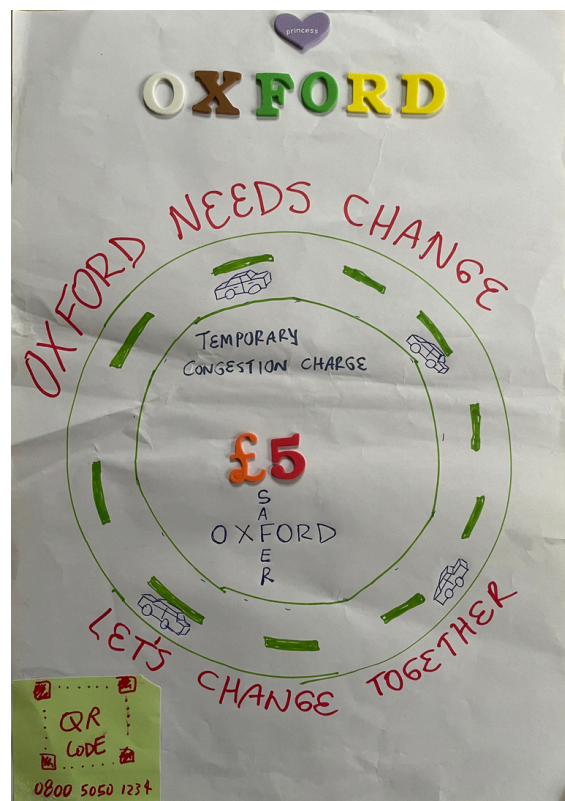 princess
OXFORD
OXFORD NEEDS CHANGE
TEMPORARY
CONGESTION CHARGE
£5
SAFER
OXFORD
LET'S CHANGE TOGETHER
QR
CODE
0800 5050 1234